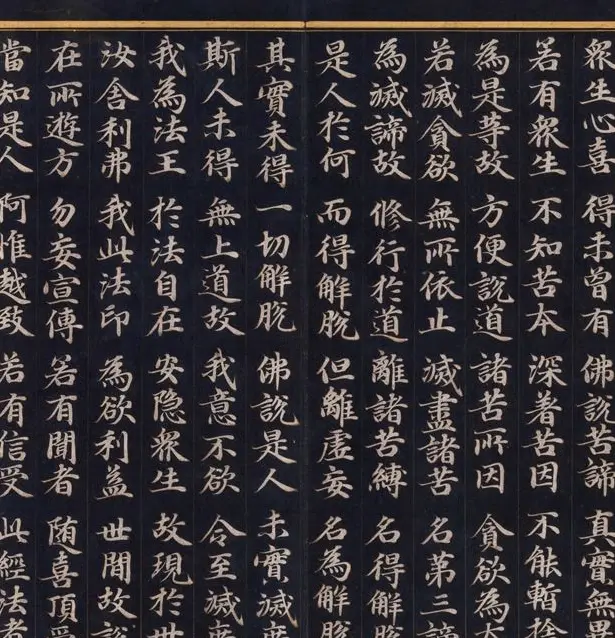 眾生心喜 得未曾有 佛說苦諦 真實無
若有眾生 不知苦本 深著苦因 不能暫捨
為是等故 方便說道 諸苦所因 貪欲為
若滅貪欲 無所依止 滅盡諸苦 名第三諦
為滅諦故 修行於道 離諸苦縛 名得解脫
是人於何 而得解脫 但離虛妄 名為解脫
其實未得 一切解脫 佛說是人 未實滅
斯人未得 無上道故 我意不欲 令至滅
我為法王 於法自在 安隱眾生 故現於世
汝舍利弗 我此法印 為欲利益 世間故
在所遊方 勿妄宣傳 若有聞者 随喜頂
當知是人 阿惟越致 若有信受 此經法者